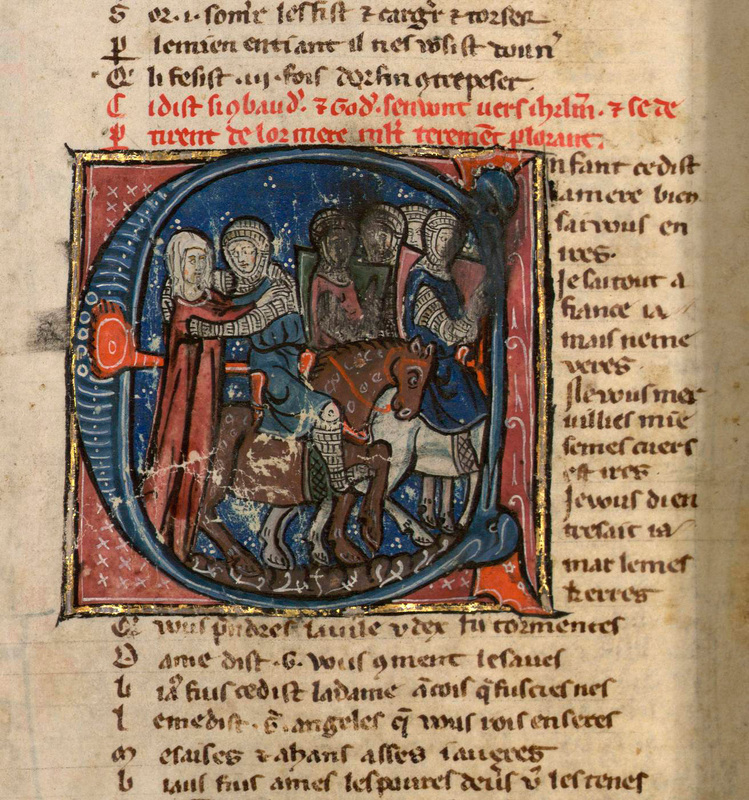 S er · i · som̄r les fist ⁊ carg̾r ⁊ torser
P le mien entiant il nes vosist doun̾
Q li fesist · iii · fois dor fin
C i dist si q̄ baud̾ · ⁊ God̾ · sen vont vers ihrl̄m · ⁊ se de
P tirent de lor mere ml̄t plorant ·
nfant ce dist
la mere bien
sai vous en
ires ·
Je sai tout a
fiance ia
mais ne me
veres
Ne vous mer
villies mie
se mes cuers
est ires
Je vous di en
tresait ia
mar le mes
kerres
Q̄ vous p̄ndres la vile u dex fu tormentes
D ame dist · G · vous 9ment le saves
b ia᷑ fius ce dist la dame q̄ fuscies nes
l e me dist · s̄ · angeles q̄ vous rois en seres
m esaises ⁊ ahans asses i aueres
b iaus fius ames les poures les cenes